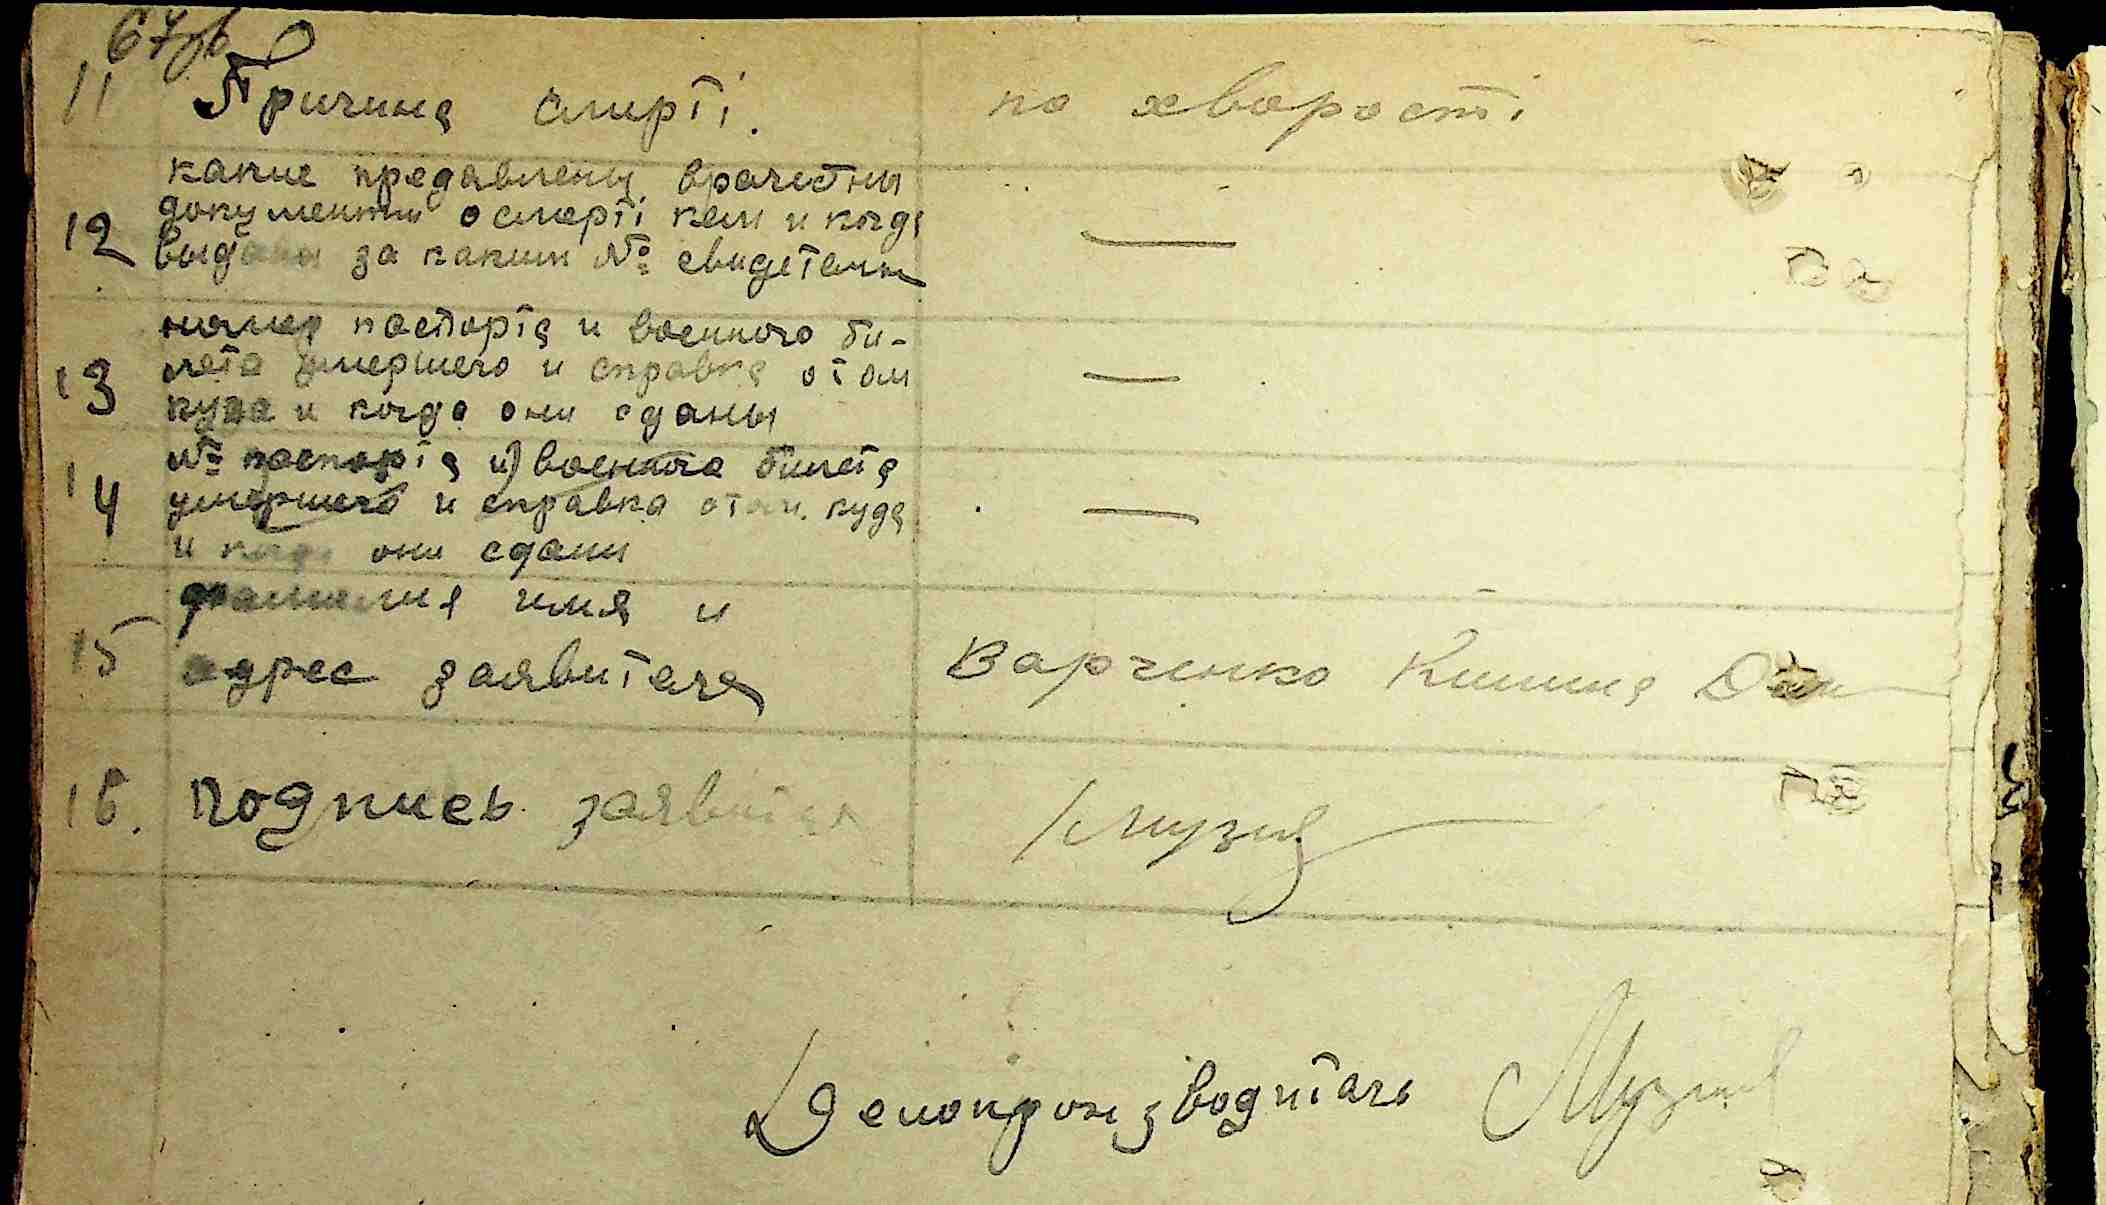 67зв
11 Причина смерті. по хворості
какие предавлены врачебны
документы о смерті кем и когда
12 выданы за каким № свидетели —
номер паспорта и военного би-
13 лета умершего и справка отом —
куда и когда они сданы
№ паспорта и военного билета
14 умершего и справка отом куда —
и когда они сдани
фамилия имя и
15 адрес заявителя Варченко Килина
16. подпись заявителя
Делопроизводитель